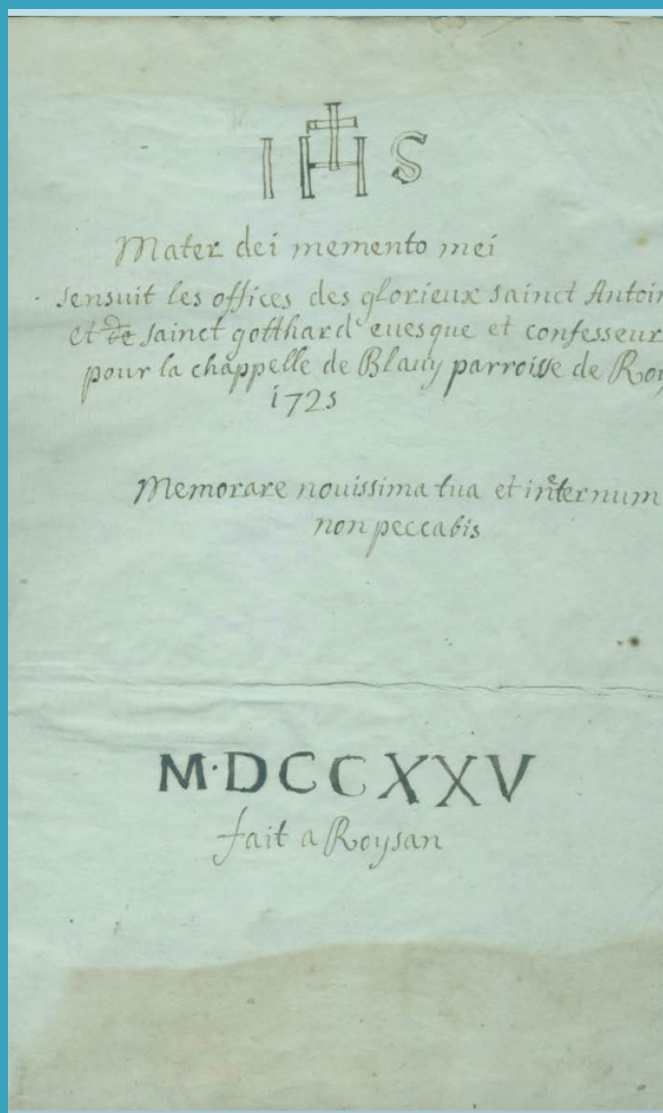 IHS
Mater dei memento mei
sensuit les offices des glorieux sainct Antoin
et de sainct gotthard euesque et confesseur
pour la chappelle de Blauy parroisse de Roy
1725
Memorare nouissima tua et in æternum
non peccabis
M·DCCXXV
fait a Roysan